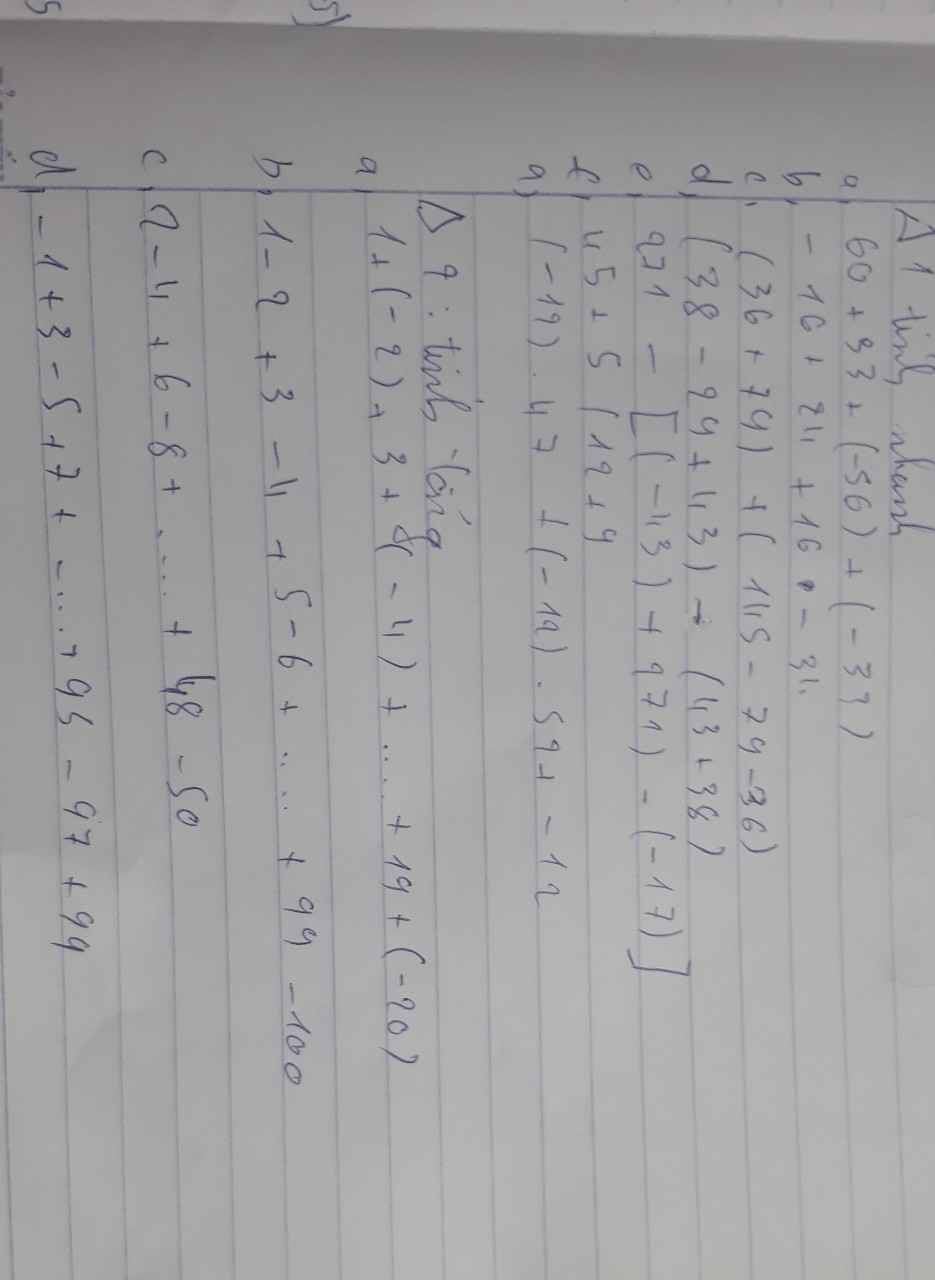 Δ 1 tính nhanh
a, 60 + 33 + (-56) + (-33)
b, - 16 + 24 + 16 - 34
c, (36 + 79) + (145 - 79 - 36)
d, (38 - 29 + 43) - (43 + 38)
e, 271 - [(-43) + 271) - (-17)]
f, 45 + 5 (12 + 9
a, (-12) . 47 + (-12) . 52 + -12
Δ 2 : tính tổng
a, 1 + (-2) + 3 + (-4) + .... + 19 + (-20)
b, 1 - 2 + 3 - 4 + 5 - 6 + .... + 99 - 100
c, 2 - 4 + 6 - 8 + .... + 48 - 50
d, - 1 + 3 - 5 + 7 + ..... + 95 - 97 + 99